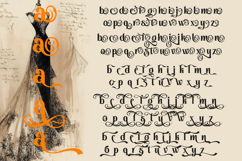 a
a
a
a
a
bcdefghijklmn
opqrstuvwxyz
bcdefghijklmn
opqrstuvwxyz
bcdefghijklmn
opqrstuvwxyz
bcdefghijklmn
opqrstuvwxyz
bcdefghijklmn
opqrstuvwxyz